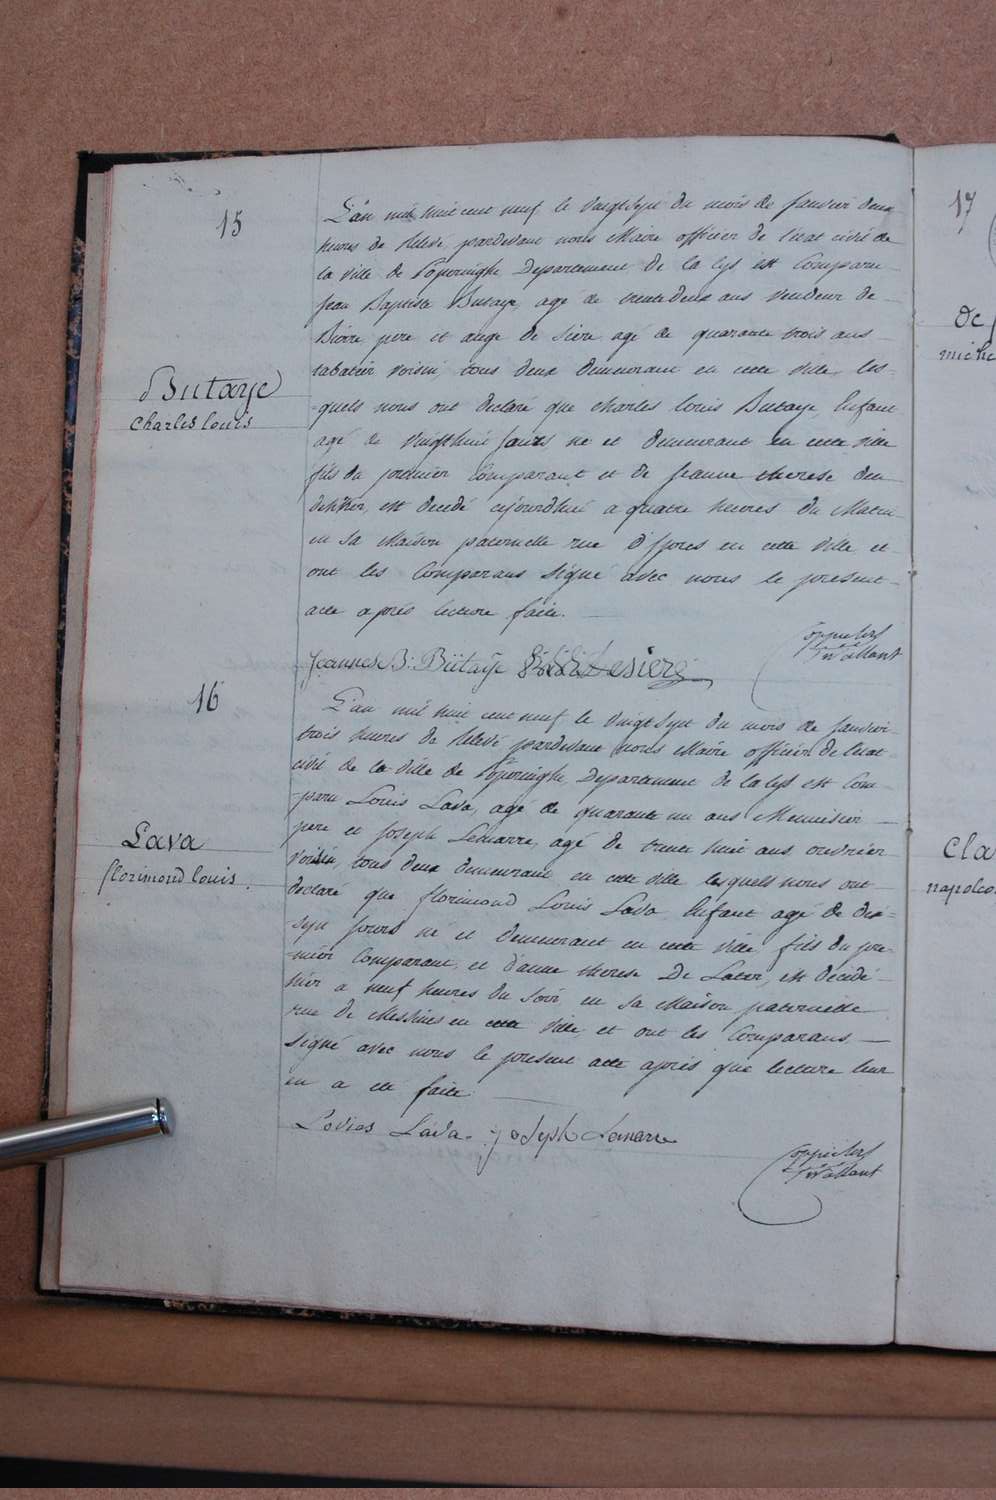 15
L'an mil huit cent neuf le vingt sept du mois de Janvier deux
heures de relevé, pardevant nous Maire officier de l'etat civil de
la ville de Poperinghe Departement de la Lys est Comparu
Jean Baptiste Butaye, agé de trente deux ans vendeur de
Bierre pere et ange de Siere agé de quarante trois ans
Butaye
Charles Louis
voisin, tous deux demeurant en cette ville, les-
-quels nous ont declaré que Charles Louis Butaye, Enfant
agé de vingt huit jours, né et demeurant en cette ville
fils du premier Comparant et de Jeanne therese
est decedé cejourdhui a quatre heures du Matin
en sa Maison paternelle rue d'Ypres en cette ville et
ont les Comparans Signé avec nous le present
acte après lecture faite.
Joannes B: Bütaÿe Desiere
16
L'an mil huit cent neuf le vingt sept du mois de Janvier
trois heures de relevé pardevant nous Maire officier de l'etat
civil de la ville de Poperinghe, Departement de la Lys est Com-
-paru Louis Lava, agé de quarante un ans Meunier
pere et Joseph Lemarre, agé de trente huit ans ouvrier
Lava
florimond louis
voisin, tous deux demeurant en cette ville lesquels nous ont
declaré que florimond Louis Lava Enfant agé de dix-
-sept jours né et demeurant en cette ville, fils du pre-
-mier Comparant, et d'anne therese De est décédé
hier a neuf heures du soir, en sa Maison paternelle
rue de Messines en cette ville, et ont les Comparans
Signé avec nous le present acte après que lecture leur
en a été faite.
Lovies Lava. Joseph Lemarre
17
De
miche
Cla
napoleo